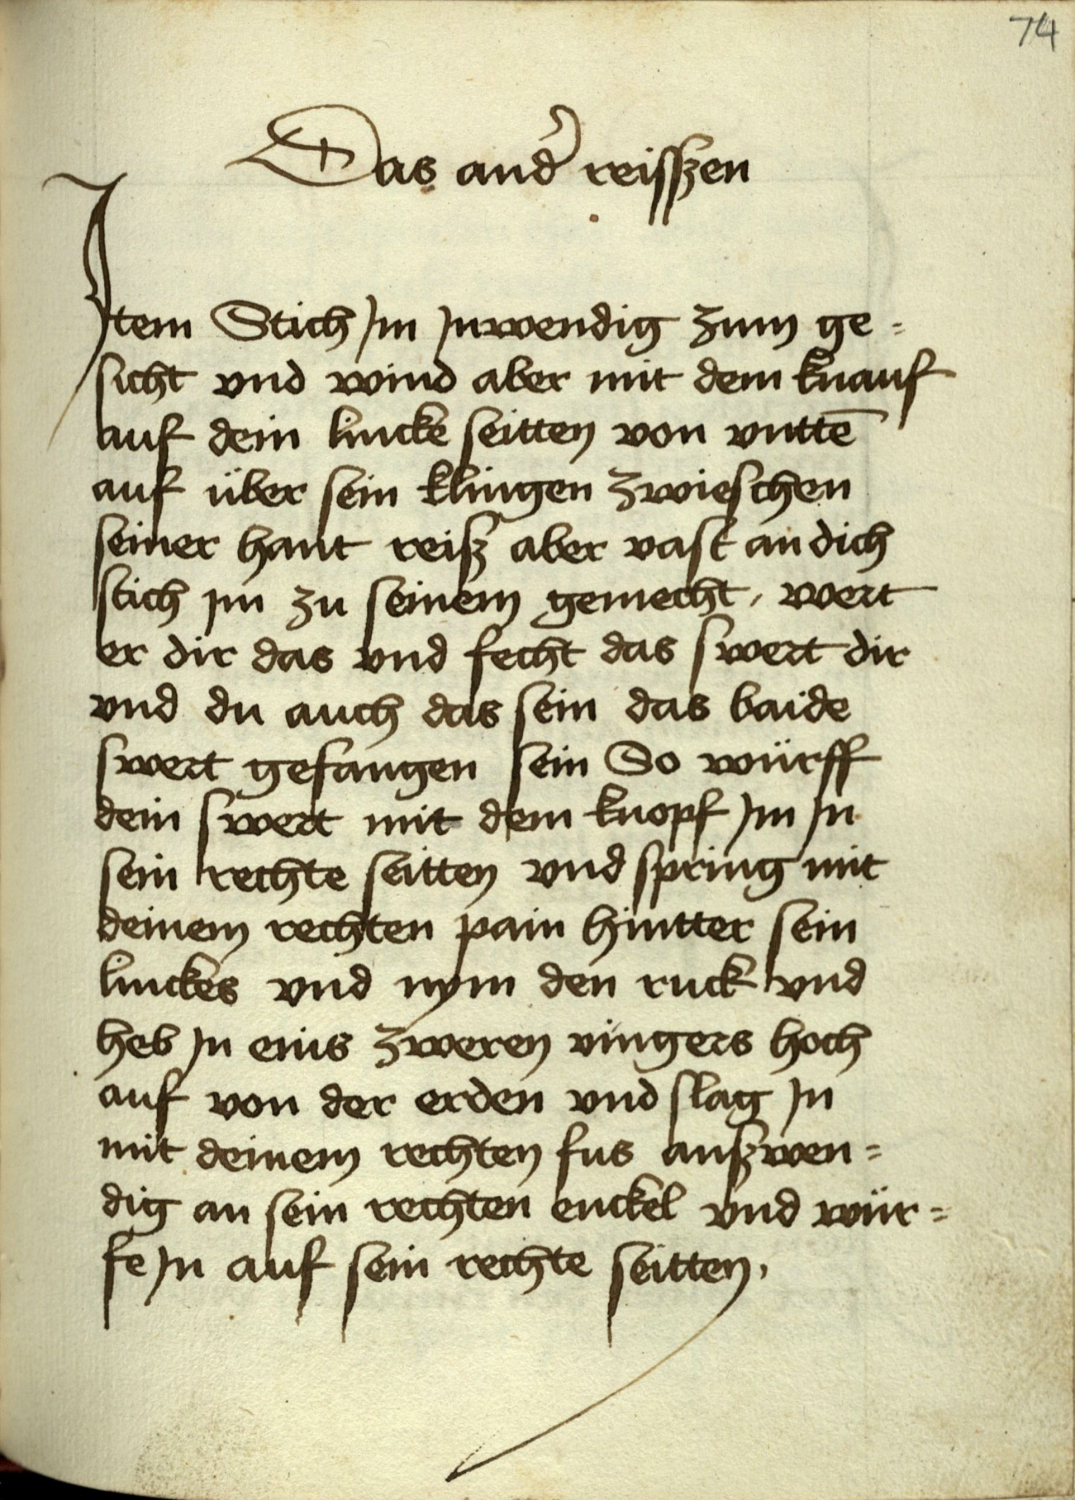 74
Das and̾ reisszen
Item Stich Jm Jnwendig zum ge=
sicht vnd wind aber mit dem knauf
auf dein lincke seitten von vnttē
auf über sein klingen zwieschen
seiner hant reisz aber vast an dich
stich jm zu seinem gemecht, wert
er dir das vnd fecht das swert dir
vnd du auch das sein das baide
swert gefangen sein So würff
dein swert mit dem knopf Jm Jn
sein rechte seitten vnd spring mit
deinem rechten pain hintter sein
linckes vnd nym den ruck vnd
heb Jn eins zweren vingers hoch
auf von der erden vnd slag Jn
mit deinem rechten fus auszwen=
dig an sein rechten enckel vnd wür=
fe Jn auf sein rechte seitten,